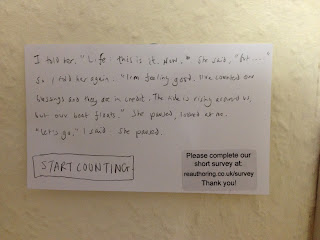 I told her. "Life this is it. Now." She said, "But ...."
So I told her again. "I'm feeling good. I've counted our
blessings and they are in credit. The tide is rising around us,
but our boat floats." She paused, looked at me.
"Let's go," I said. She paused.
START COUNTING
Please complete our
short survey at:
reauthoring.co.uk/survey
Thank you!